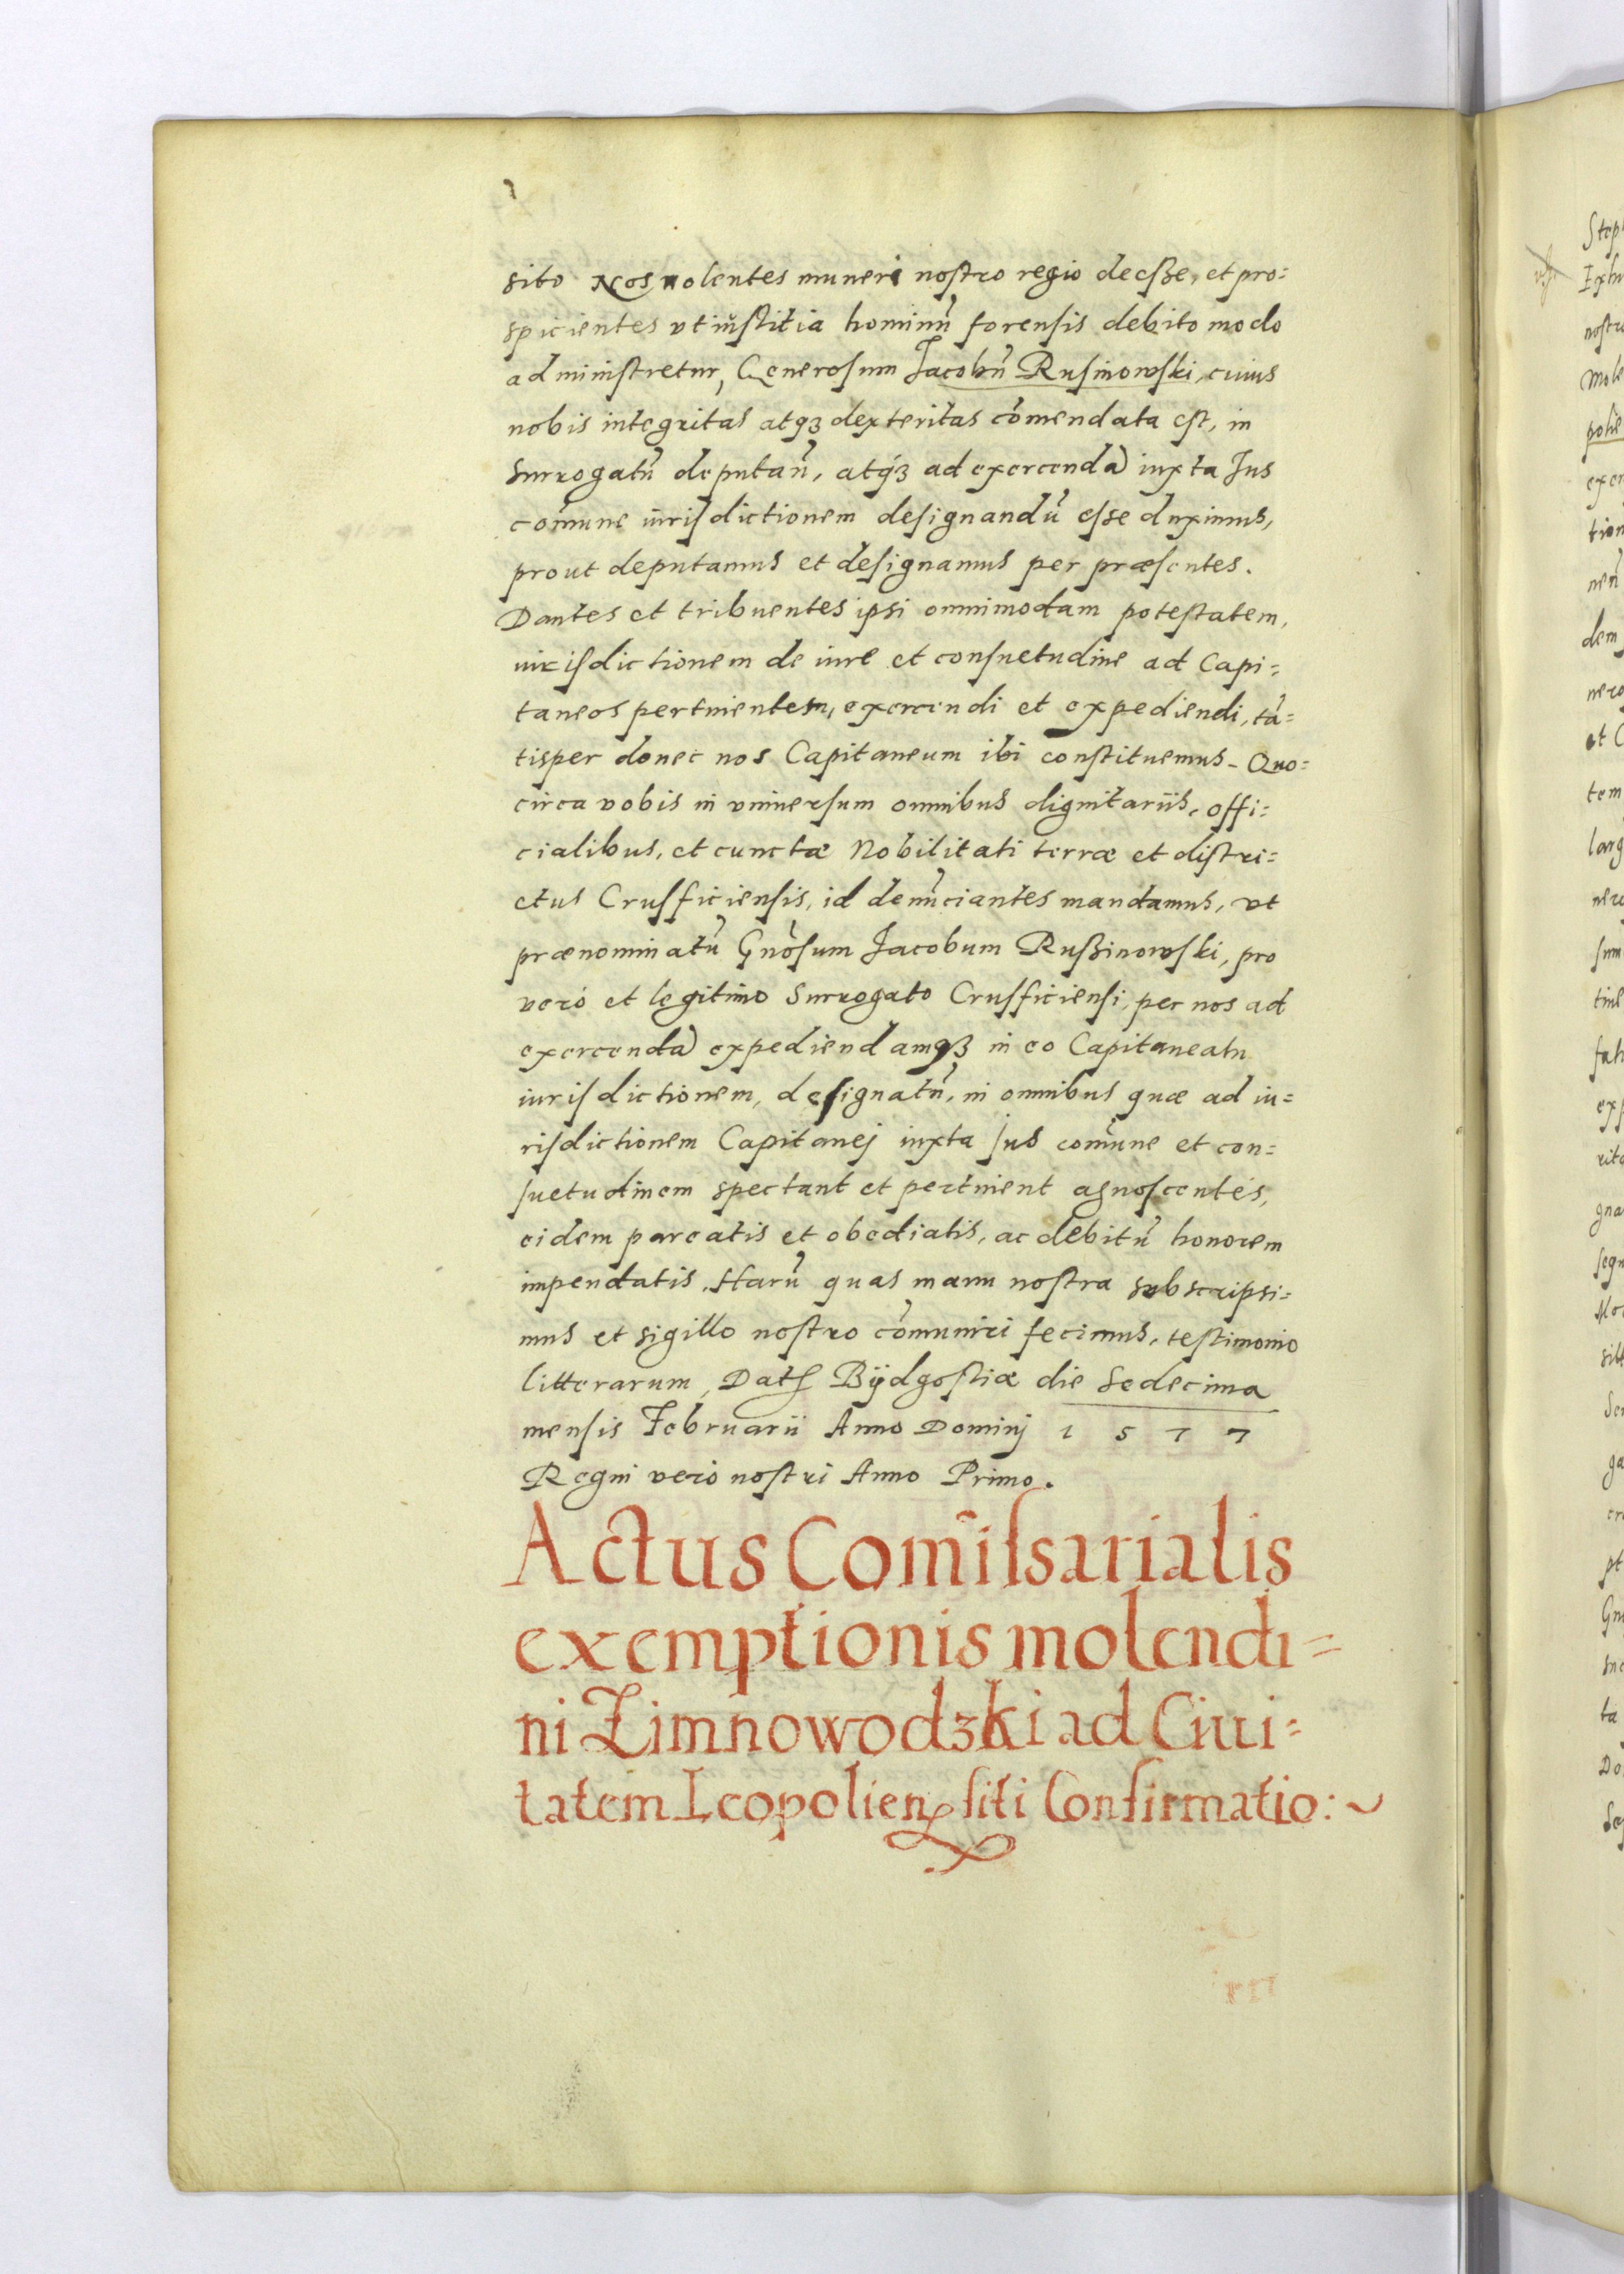 sito Nos nolentes muneri nostro regio deesse, et pro=
spicientes vt iustitia hominū forensis debito modo
administretur, Generosum Jacobū Rusinowski, cuius
nobis integritas atq₃ dexteritas cōmendata est, in
Surrogatū deputań, atq₃ ad exercendā iuxta Jus
comune iurisdictionem designandū esse duximus,
prout deputamus et designamus per præsentes.
Dantes et tribuentes ipsi omnimodam potestatem,
iurisdictionem de iure et consuetudine ad Capi=
taneos pertinentem, exercendi et expediendi, tā=
tisper donec nos Capitaneum ibi constituemus. Quo=
circa vobis in vniuersum omnibus dignitariis, offi=
cialibus, et cunctæ Nobilitati terræ et distri=
ctus Crusficiensis, id denūciantes mandamus, vt
prænominatū Gnosum Jacobum Rußinowski, pro
vero et legitimo Surrogato Crusficiensi, per nos ad
exercendā expediendamq₃ in eo Capitaneatu
iurisdictionem, designatū, in omnibus quæ ad iu=
risdictionem Capitanej iuxta Jus comune et con=
suetudinem spectant et pertinent agnoscentes,
eidem pareatis et obediatis, ac debitū honorem
impendatis. Harū quas manu nostra subscripsi=
mus et sigillo nostro cōmuniri fecimus, testimonio
litterarum, Dat Bÿdgostiæ die Sedecima
mensis Februarii Anno Dominj 1 5 7 7
Regni vero nostri Anno Primo.
Actus Com̄issarialis
exemptionis molendi=
ni Zimnowodzki ad Ciui=
tatem Leopolień siti Confirmatio:~